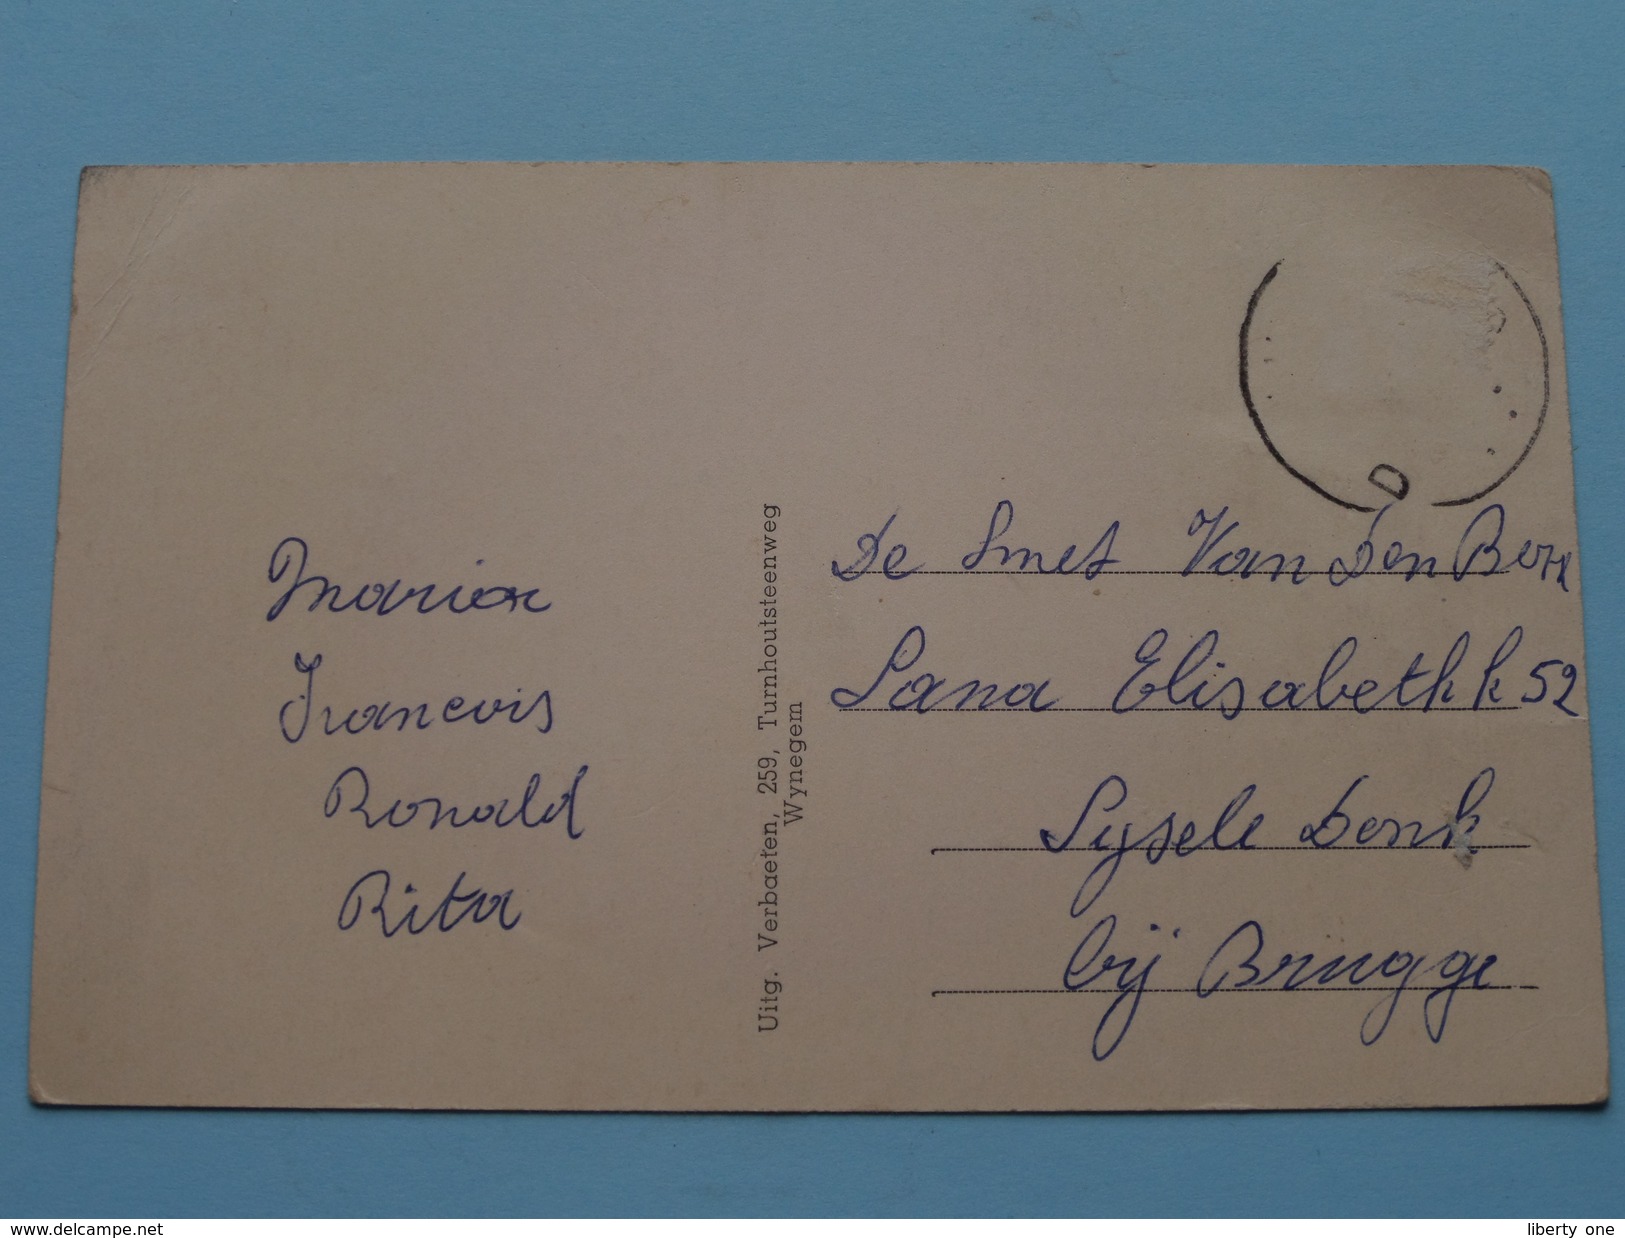 Marion
Francois
Ronald
Rita
Uitg. Verbaeten, 259, Turnhoutsteenweg
Wynegem
D
De Smet Van Den Born
Lana Elisabethk k 52
Sysele Donk
bij Brugge
www.delcampe.net
liberty_one